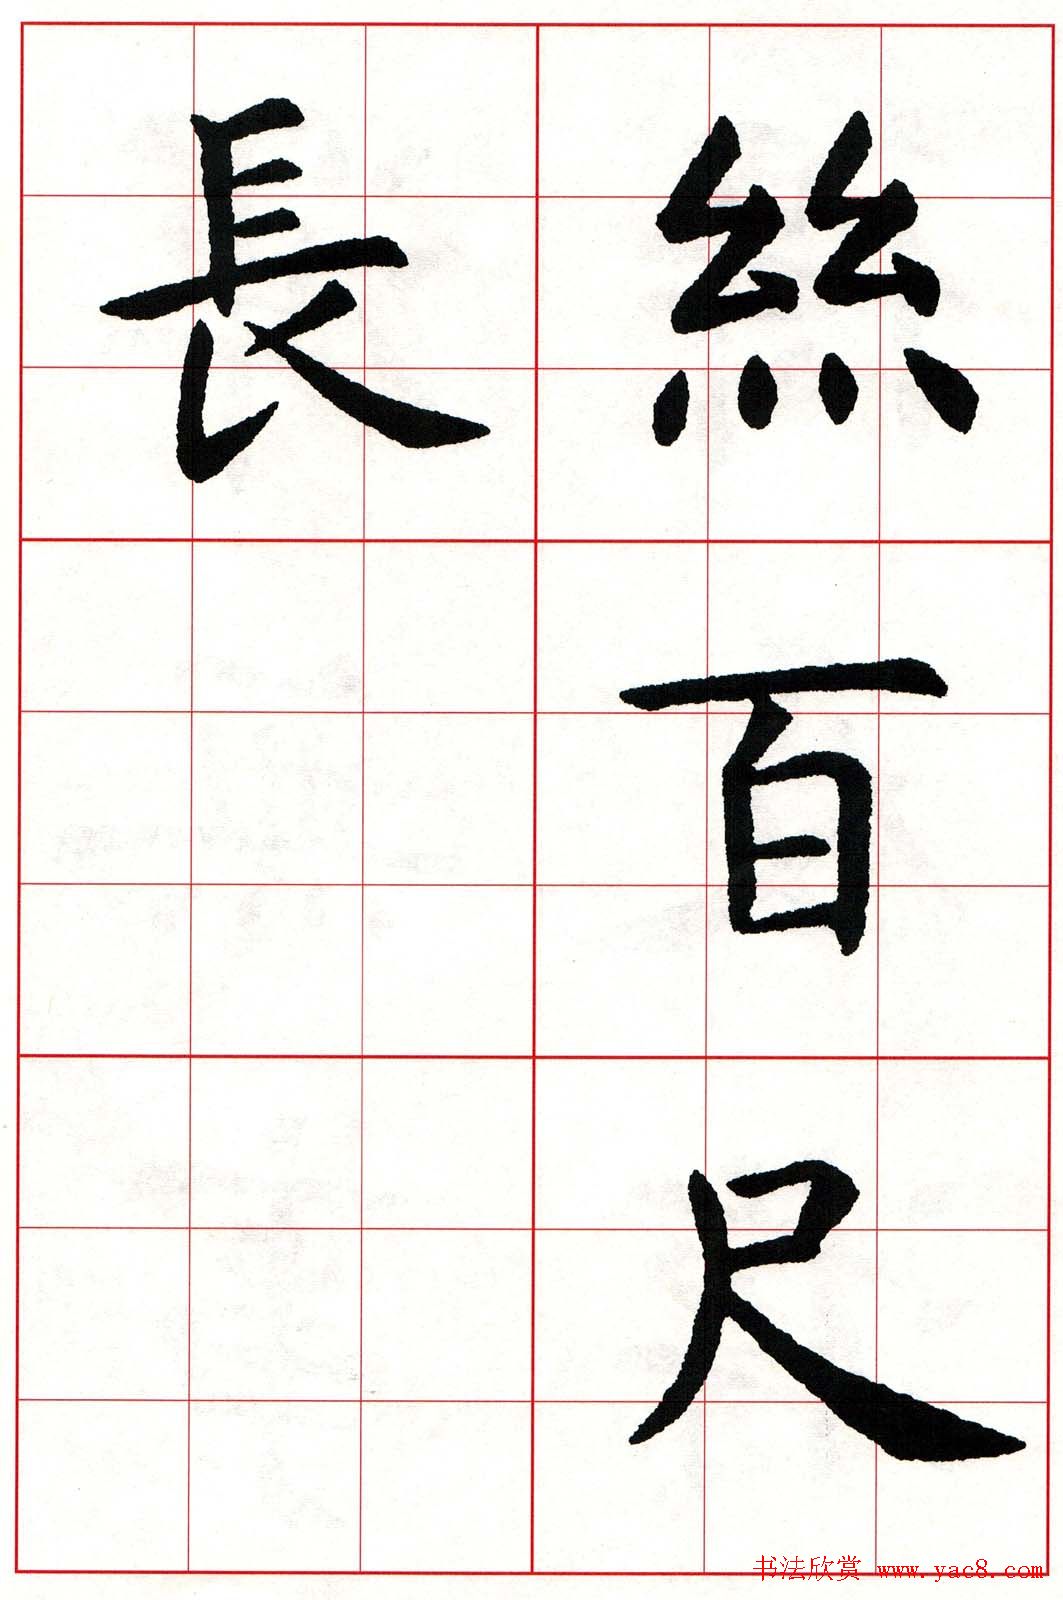 絲百尺
長
书法欣赏 www.yac8.com